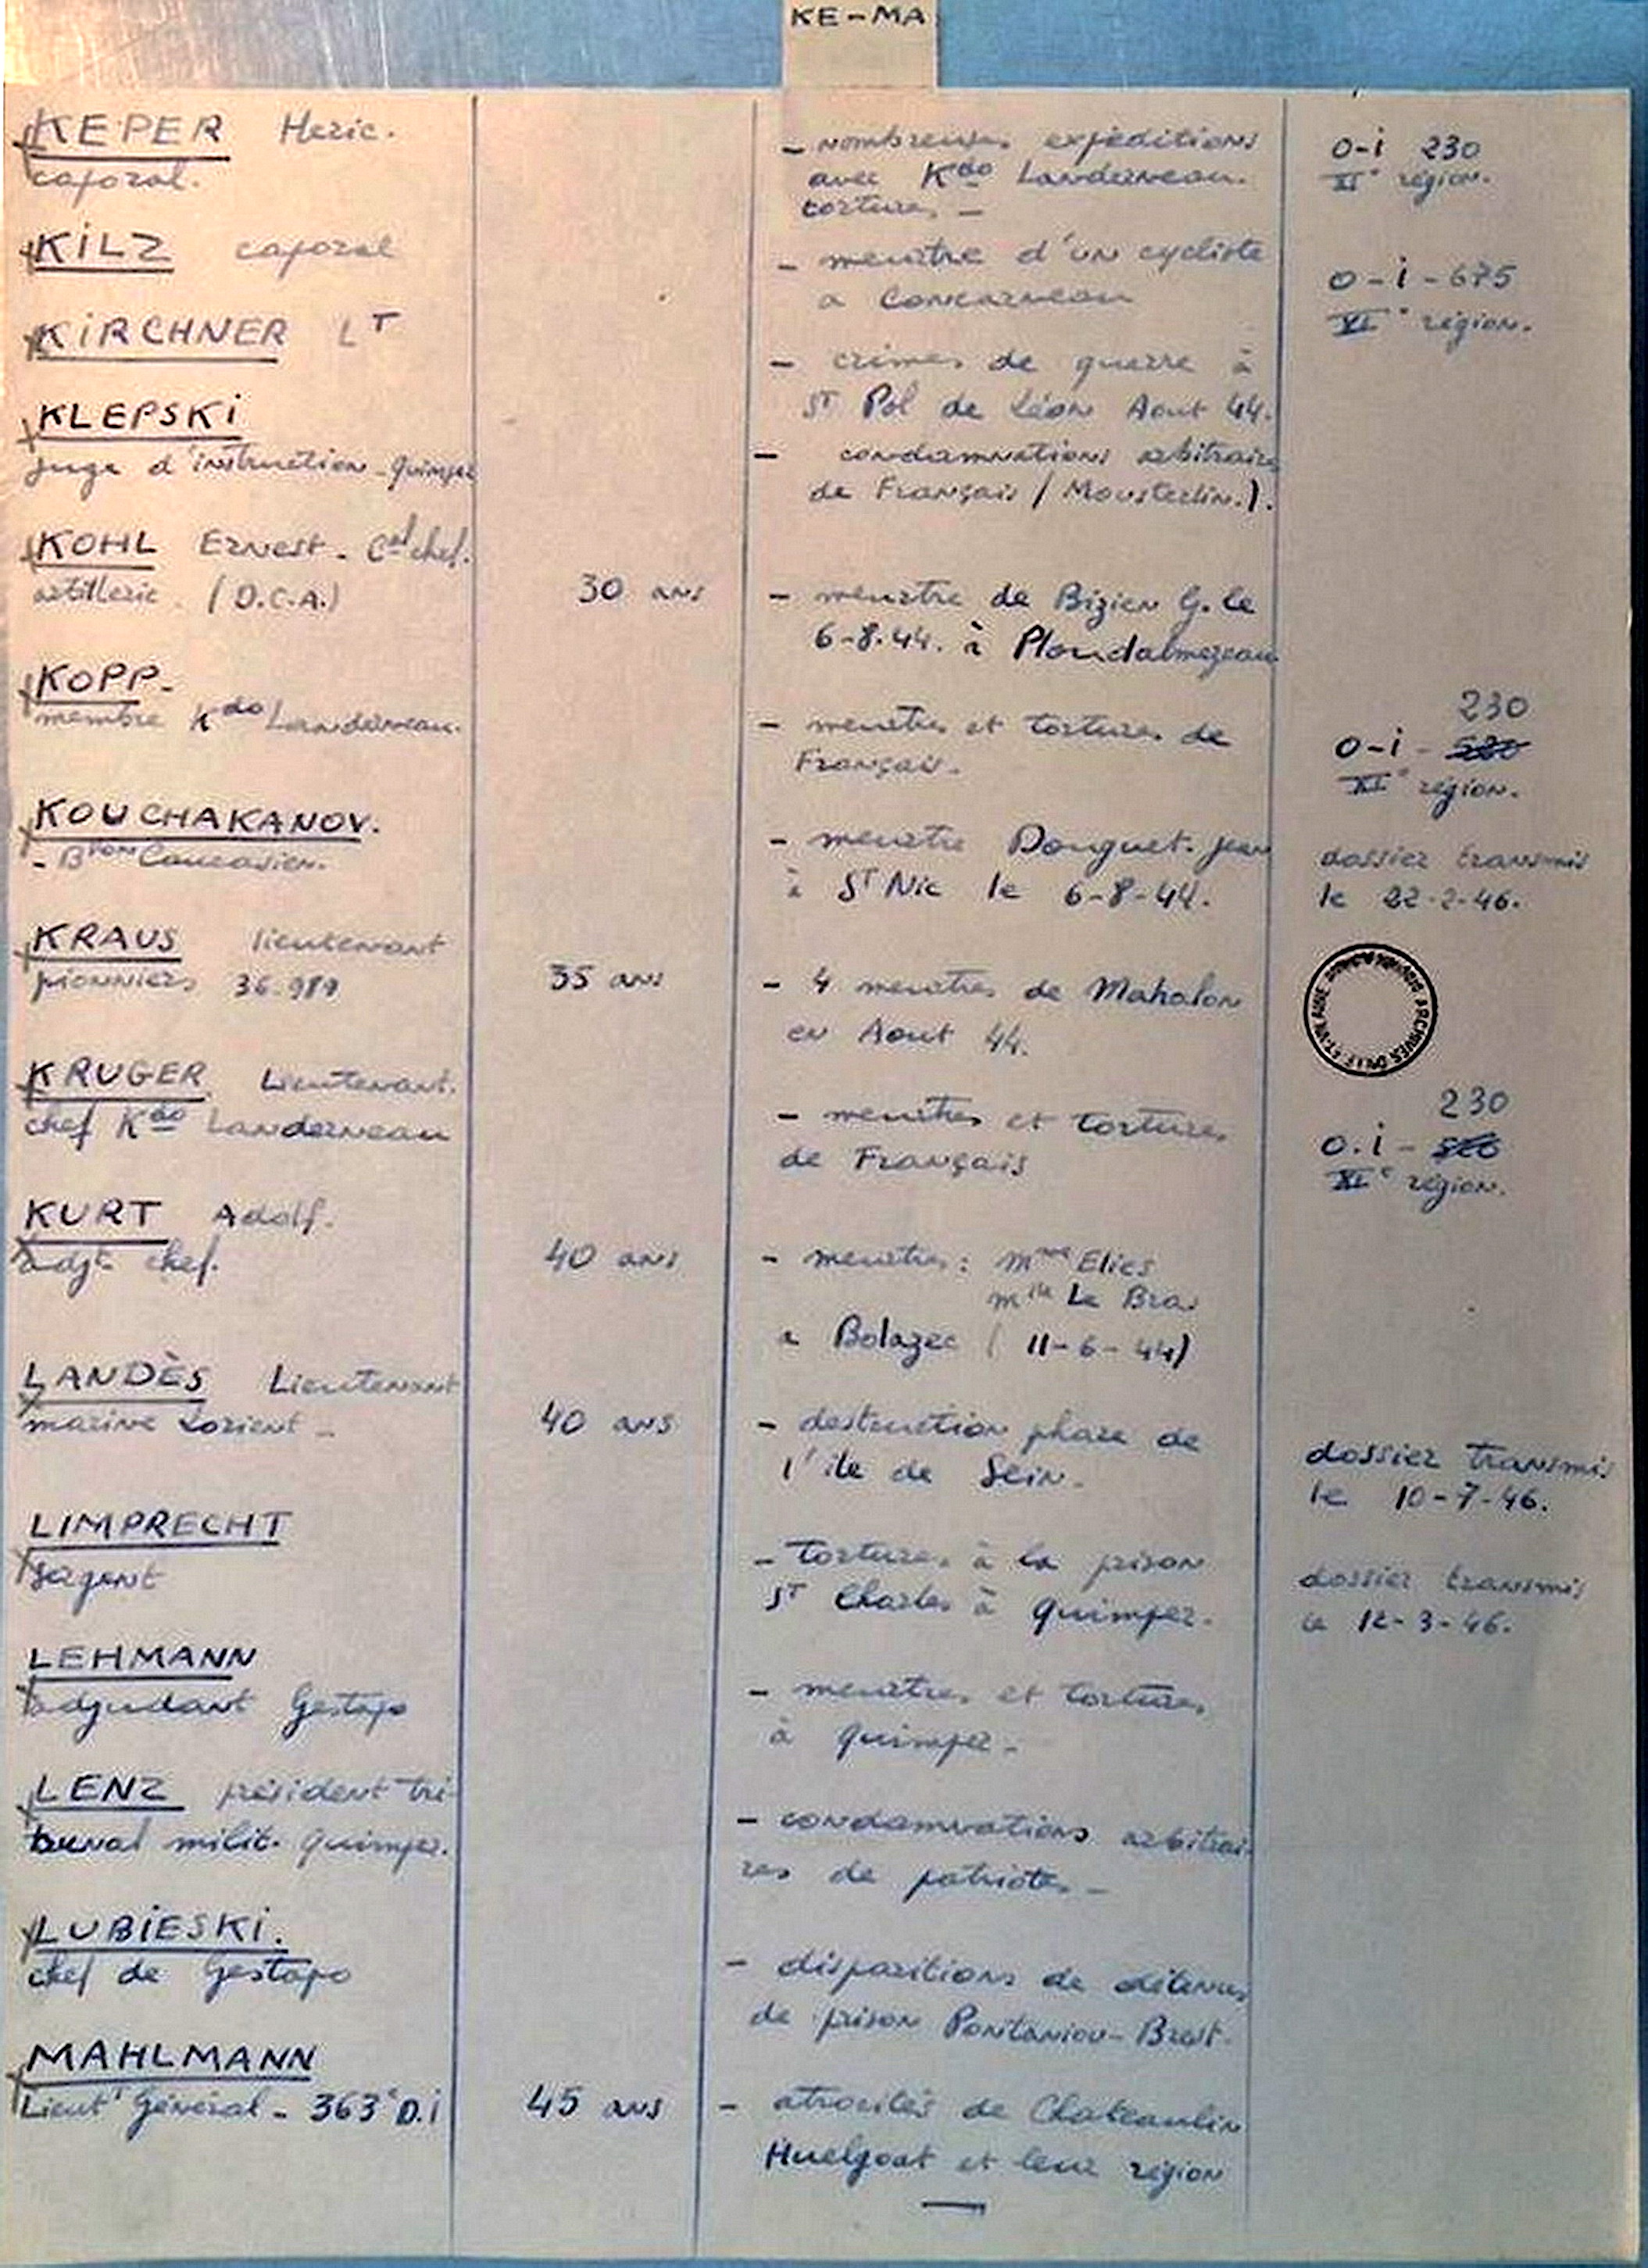 KE-MA
KEPER Heric.
caporal.
- nombreuses expéditions
avec Kdo Landerneau.
tortures -
O-i 230
XIe région.
KILZ caporal
- meurtre d'un cycliste
a Concarneau
O-i-675
XIe région.
KIRCHNER LT
- crimes de guerre à
ST Pol de Léon Aout 44.
KLEPSKI
juge d'instruction-Quimper
- condamnations arbitraires
de Français (Mousterlin.).
KOHL Ernest - Cal chef.
artillerie. (D.C.A.)
30 ans
- meurtre de Bizien G. le
6-8.44. à Ploudalmezeau
KOPP-
membre Kdo Landerneau.
- meurtres et tortures de
Français.
230
O-i-
XIe région.
KOUCHAKANOV.
- Bton Caucasien.
- meurtre Donguet. Jean
à ST Nic le 6-8-44.
dossier transmis
le 22-2-46.
KRAUS lieutenant
pionniers 36.989
35 ans
- 4 meurtres de Mahalon
en Aout 44.
KRUGER Lieutenant.
chef Kdo Landerneau
- meurtres et tortures
de Français
230
O.i-
XIe région.
KURT Adolf.
adjt chef.
40 ans
- meurtres: Mme Elies
Mlle Le Bras
a Bolazec (11-6-44)
LANDÈS Lieutenant
marine Lorient -
40 ans
- destruction phare de
l'ile de Sein.
dossier transmis
le 10-7-46.
LIMPRECHT
sergent
- tortures à la prison
ST Charles à Quimper.
dossier transmis
le 12-3-46.
LEHMANN
adjudant Gestapo
- meurtres et tortures
à Quimper-
LENZ président tri-
bunal milit. Quimper.
- condamnations arbitrai-
res de patriotes -
LUBIESKI.
chef de Gestapo
- disparitions de détenus
de prison Pontaniou-Brest.
MAHLMANN
Lieutt Général - 363e D.I
45 ans
- atrocités de Chateaulin
Huelgoat et leur région